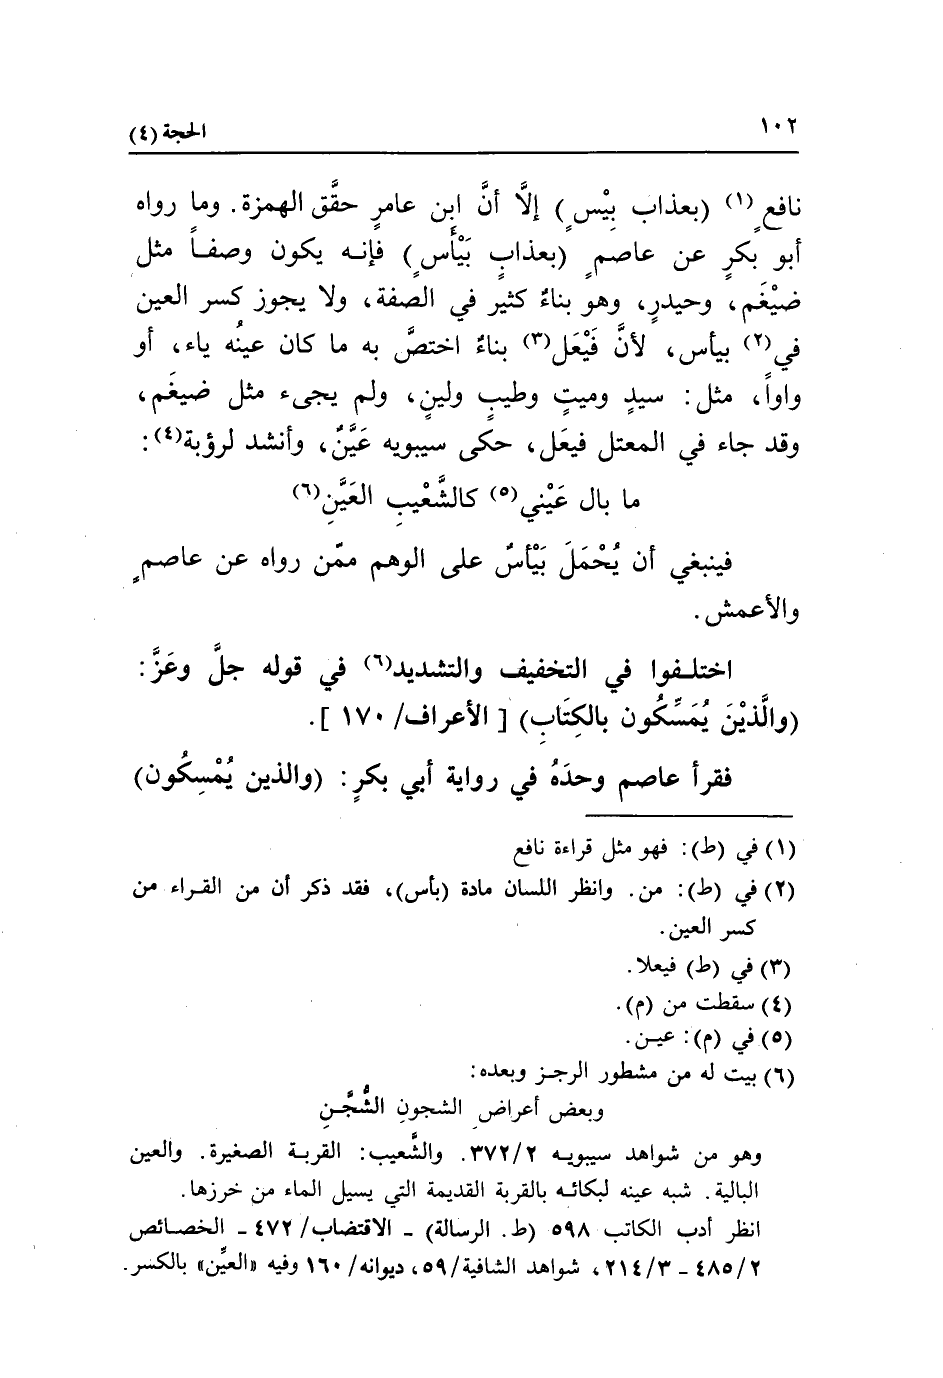 ١٠٢
الحجة (٤)
نافعٍ (١) (بعذاب بِيْسٍ) إلاَّ أنَّ ابن عامرٍ حقَّق الهمزة. وما رواه
أبو بكرٍ عن عاصمٍ (بعذابٍ بَيْأَسٍ) فإنـه يكون وصفـاً مثل
ضيْغَمٍ، وحيدرٍ، وهو بناءٌ كثير في الصفة، ولا يجوز كسر العين
في(٢) بيأس، لأنَّ فَيْعَل(٣) بناءٌ اختصَّ به ما كان عينُه ياء، أو
واواً، مثل: سيدٍ وميتٍ وطيبٍ ولينٍ، ولم يجىء مثل ضيغَم،
وقد جاء في المعتل فيعَل، حكى سيبويه عَيَّنٌ، وأنشد لرؤبة(٤):
ما بال عَيْني(٥) كالشَّعْيبِ العَيَّنِ(٦)
فينبغي أن يُحْمَلَ بَيْأسٌ على الوهم ممّن رواه عن عاصمٍ
والأعمش.
اختلـفوا في التخفيف والتشديد(٦) في قوله جلَّ وعَزَّ:
(والَّذيْنَ يُمَسِّكُون بالكِتَابِ) [ الأعراف/ ١٧٠ ].
فقرأ عاصم وحدَهُ في رواية أبي بكرٍ: (والذين يُمْسِكُون)
(١) في (ط): فهو مثل قراءة نافع
(٢) في (ط): من. وانظر اللسان مادة (بأس)، فقد ذكر أن من القـراء من
كسر العين.
(٣) في (ط) فيعلا.
(٤) سقطت من (م).
(٥) في (م): عيـن.
(٦) بيت له من مشطور الرجـز وبعده:
وبعض أعراضِ الشجونِ الشُّجَّـنِ
وهو من شواهد سيبويـه ٣٧٢/٢. والشَّعيب: القربـة الصغيرة. والعين
البالية. شبه عينه لبكائـه بالقربة القديمة التي يسيل الماء من خرزها.
انظر أدب الكاتب ٥٩٨ (ط. الرسالة) ـ الاقتضاب/ ٤٧٢ ـ الخصـائص
٤٨٥/٢ ـ ٢١٤/٣، شواهد الشافية/٥٩، ديوانه/ ١٦٠ وفيه «العيِّن» بالكسر.